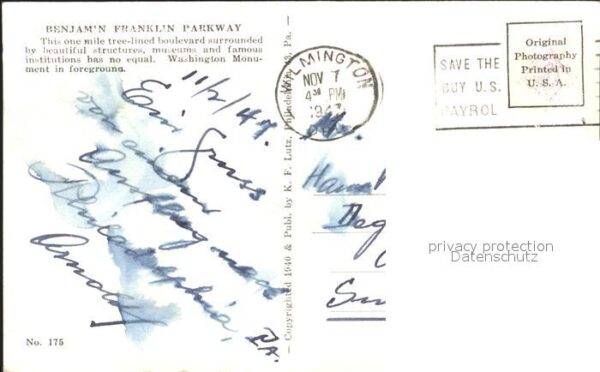 BENJAM'N FRANKLIN PARKWAY
This one mile tree-lined boulevard surrounded
by beautiful structures, museums and famous
institutions has no equal. Washington Monu-
ment in foreground.
11/2/47.
Ein Gruss
von
Ausflug nach
Philadelphia,
Pa.
Arnold
No. 175
— Copyrighted 1940 & Publ. by K. F. Lutz, Philadelphia 33, Pa. —
WILMINGTON
NOV 7
4 30 PM
1947
SAVE THE
BUY U.S.
PAYROL
Original
Photography
Printed in
U. S. A.
privacy protection
Datenschutz